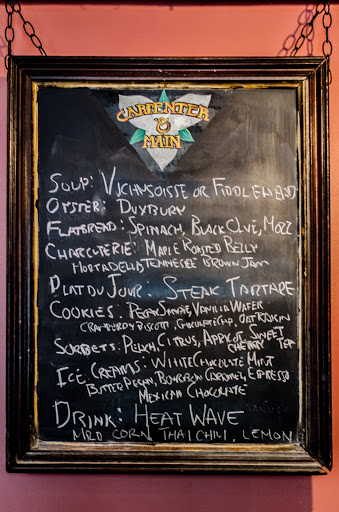 CARPENTER
&
MAIN
SOUP: VICHYSOISSE OR FIDDLEHEAD
OYSTER: DUXBURY
FLATBREAD: SPINACH, BLACK OLIVE, MOZZ
CHARCUTERIE: MAPLE ROASTED BELLY
MORTADELLA TENNESSEE BROWN JAM
PLAT DU JOUR: STEAK TARTARE
COOKIES: VANILLA WAFER
CRANBERRY BISCOTTI, CHOCOLATE CHIP, OAT RAISIN
SORBETS: PEACH, CITRUS, APRICOT SWEET
CHERRY TEA
ICE CREAMS: WHITE CHOCOLATE MINT
BUTTER PECAN, BOURBON CARAMEL, ESPRESSO
MEXICAN CHOCOLATE
DRINK: HEAT WAVE
MRD CORN, THAI CHILI, LEMON